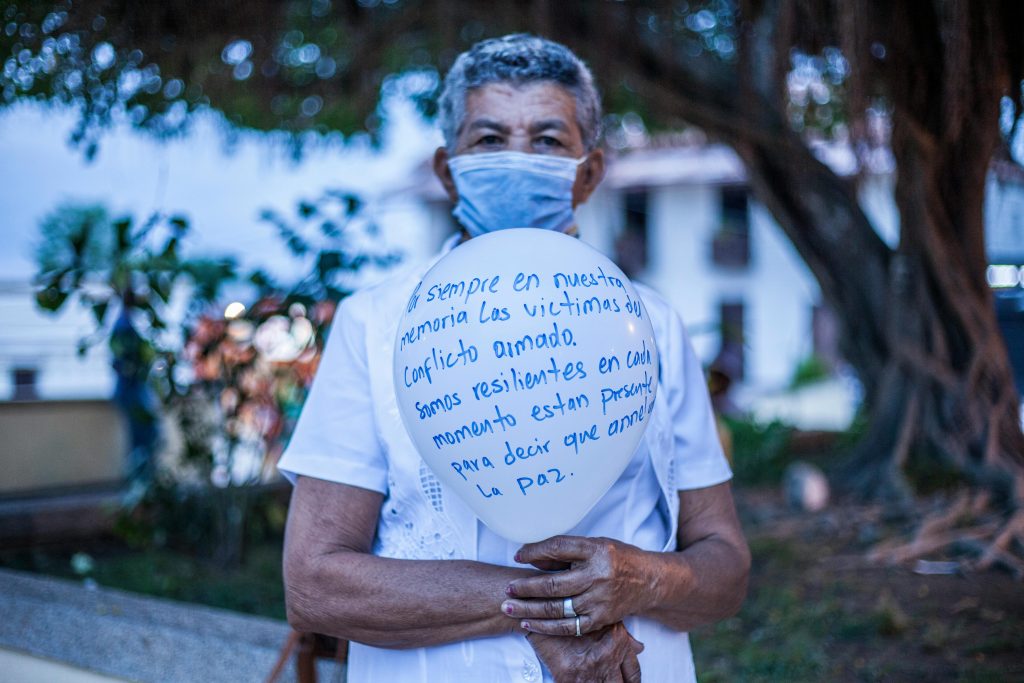 siempre en nuestra
memoria Las victimas del
conflicto armado.
somos resilientes en cada
momento estan presente
para decir que annel
La Paz.